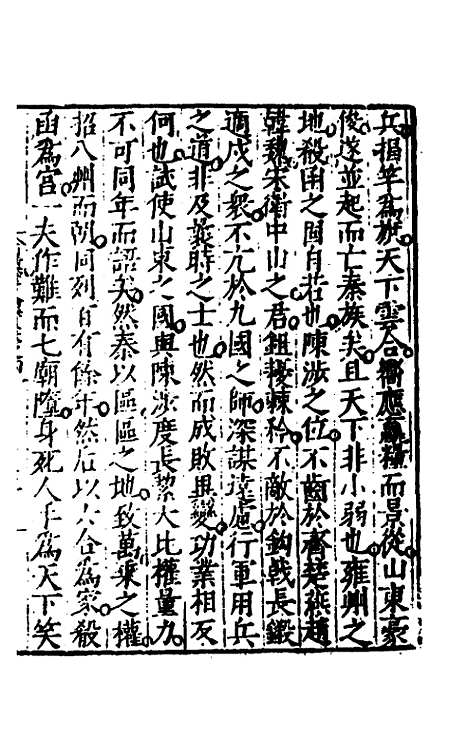 兵揭竿為旂天下雲合響應贏糧而景從山東豪
俊遂並起而亡秦族矣且天下非小弱也雍州之
地殽函之固自若也陳涉之位不齒於齊楚燕趙
韓魏宋衛中山之君鉏耰棘矜不敵於鈎戟長鎩
適戍之衆不亢於九國之師深謀遠慮行軍用兵
之道非及曩時之士也然而成敗異變功業相反
何也試使山東之國與陳涉度長絜大比權量力
不可同年而語矣然秦以區區之地致萬乘之權
招八州而朝同列百有餘年然后以六合為家殽
函為宫一夫作難而七廟隳身死人手為天下笑